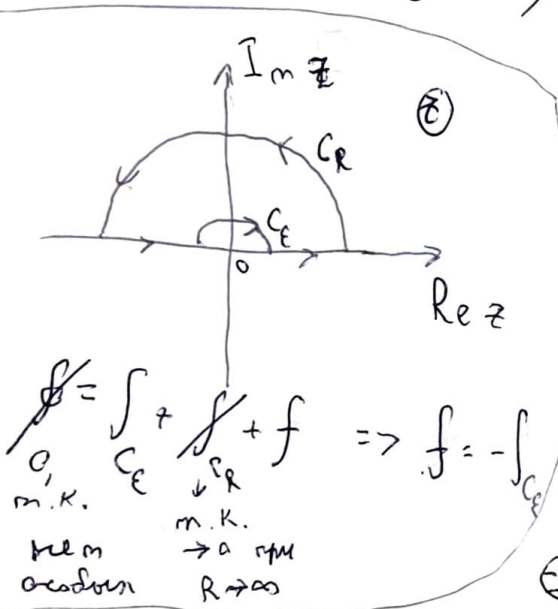 Im z
(z)
C_R
C_ε
0
Re z
∮ = ∫_{C_ε} + ∫_{C_R} + f => f = -∫_{C_ε}
0, т.к.
нет
особых
↓ т.к.
→ 0 при
R→∞